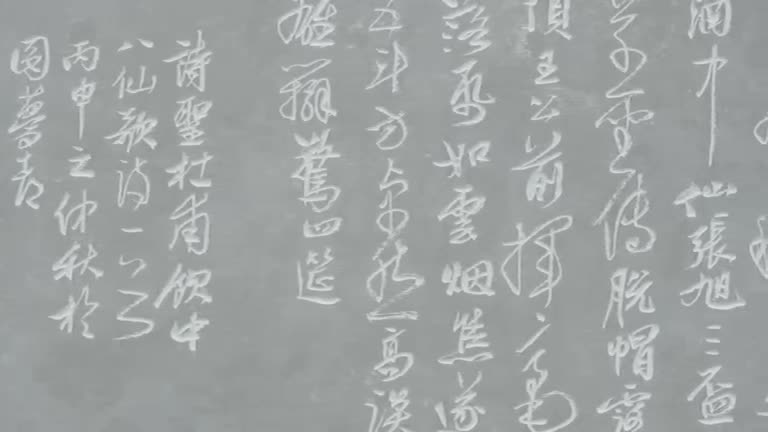 酒中仙張旭三盃
草聖傳脫帽露
頂王公前揮毫
落紙如雲烟焦遂
五斗方卓然高談
雄辯驚四筵
詩聖杜甫飲中
八仙歌詩一首
丙申之仲秋於